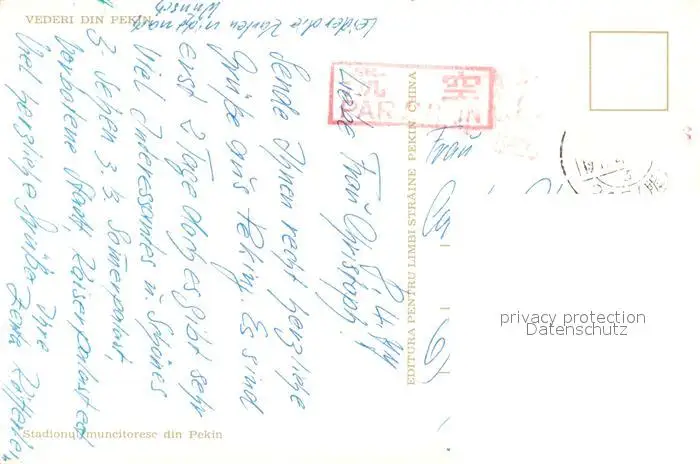 VEDERI DIN PEKIN
Leider die Karten nicht nach
Wunsch
航空
PAR AVION
8. 4. 
Liebe Frau Christoph!
Sende Ihnen recht herzliche
Grüße aus Peking. Es sind
erst 2 Tage doch es gibt sehr
viel Interessantes u. Schönes
z. sehen z. B. Sommerpalast,
verbotene Stadt, Kaiserpalast
Viel herzliche Grüße Ihre
EDITURA PENTRU LIMBI STRĂINE PEKIN CHINA
Frau
Stadionul muncitoresc din Pekin
privacy protection
Datenschutz